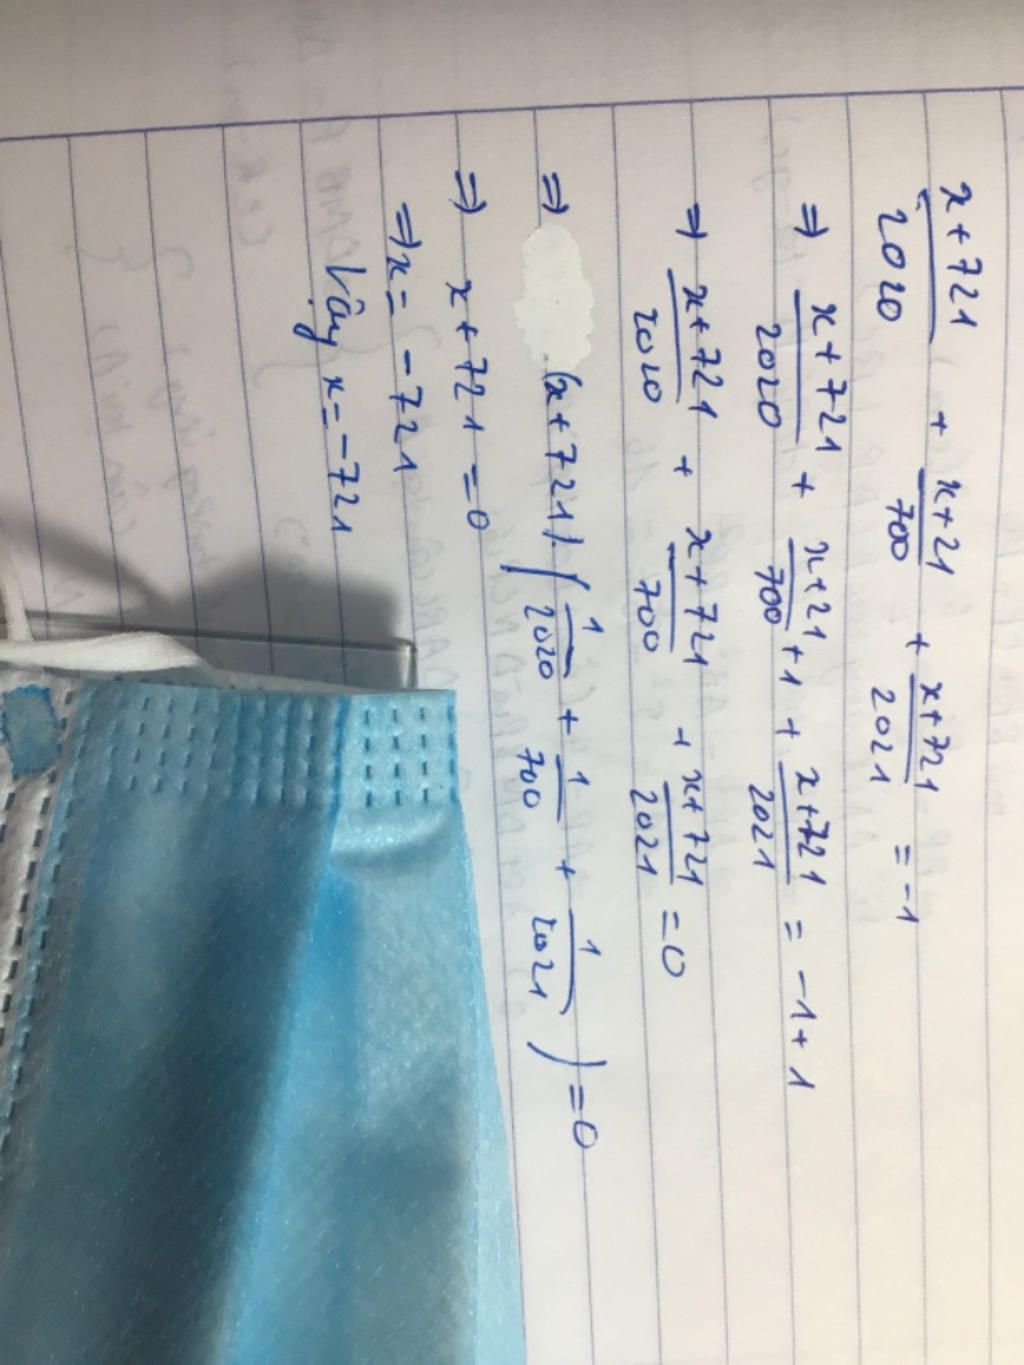 x+721/2020 + x+21/700 + x+721/2021 = -1
⇒ x+721/2020 + x+21/700 +1 + x+721/2021 = -1+1
⇒ x+721/2020 + x+721/700 + x+721/2021 = 0
⇒ (x+721).(1/2020 + 1/700 + 1/2021) = 0
⇒ x+721 = 0
⇒ x = -721
Vậy x = -721